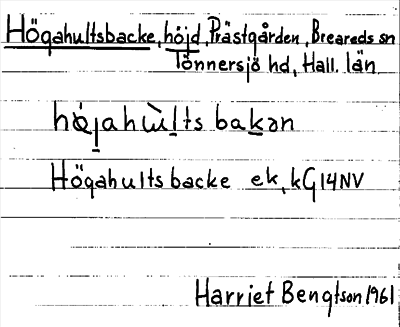 Högahultsbacke, höjd, Prästgården, Breareds sn
Tönnersjö hd, Hall. län
höjahùlts bakən
Högahultsbacke ek, kG14NV
Harriet Bengtson 1961